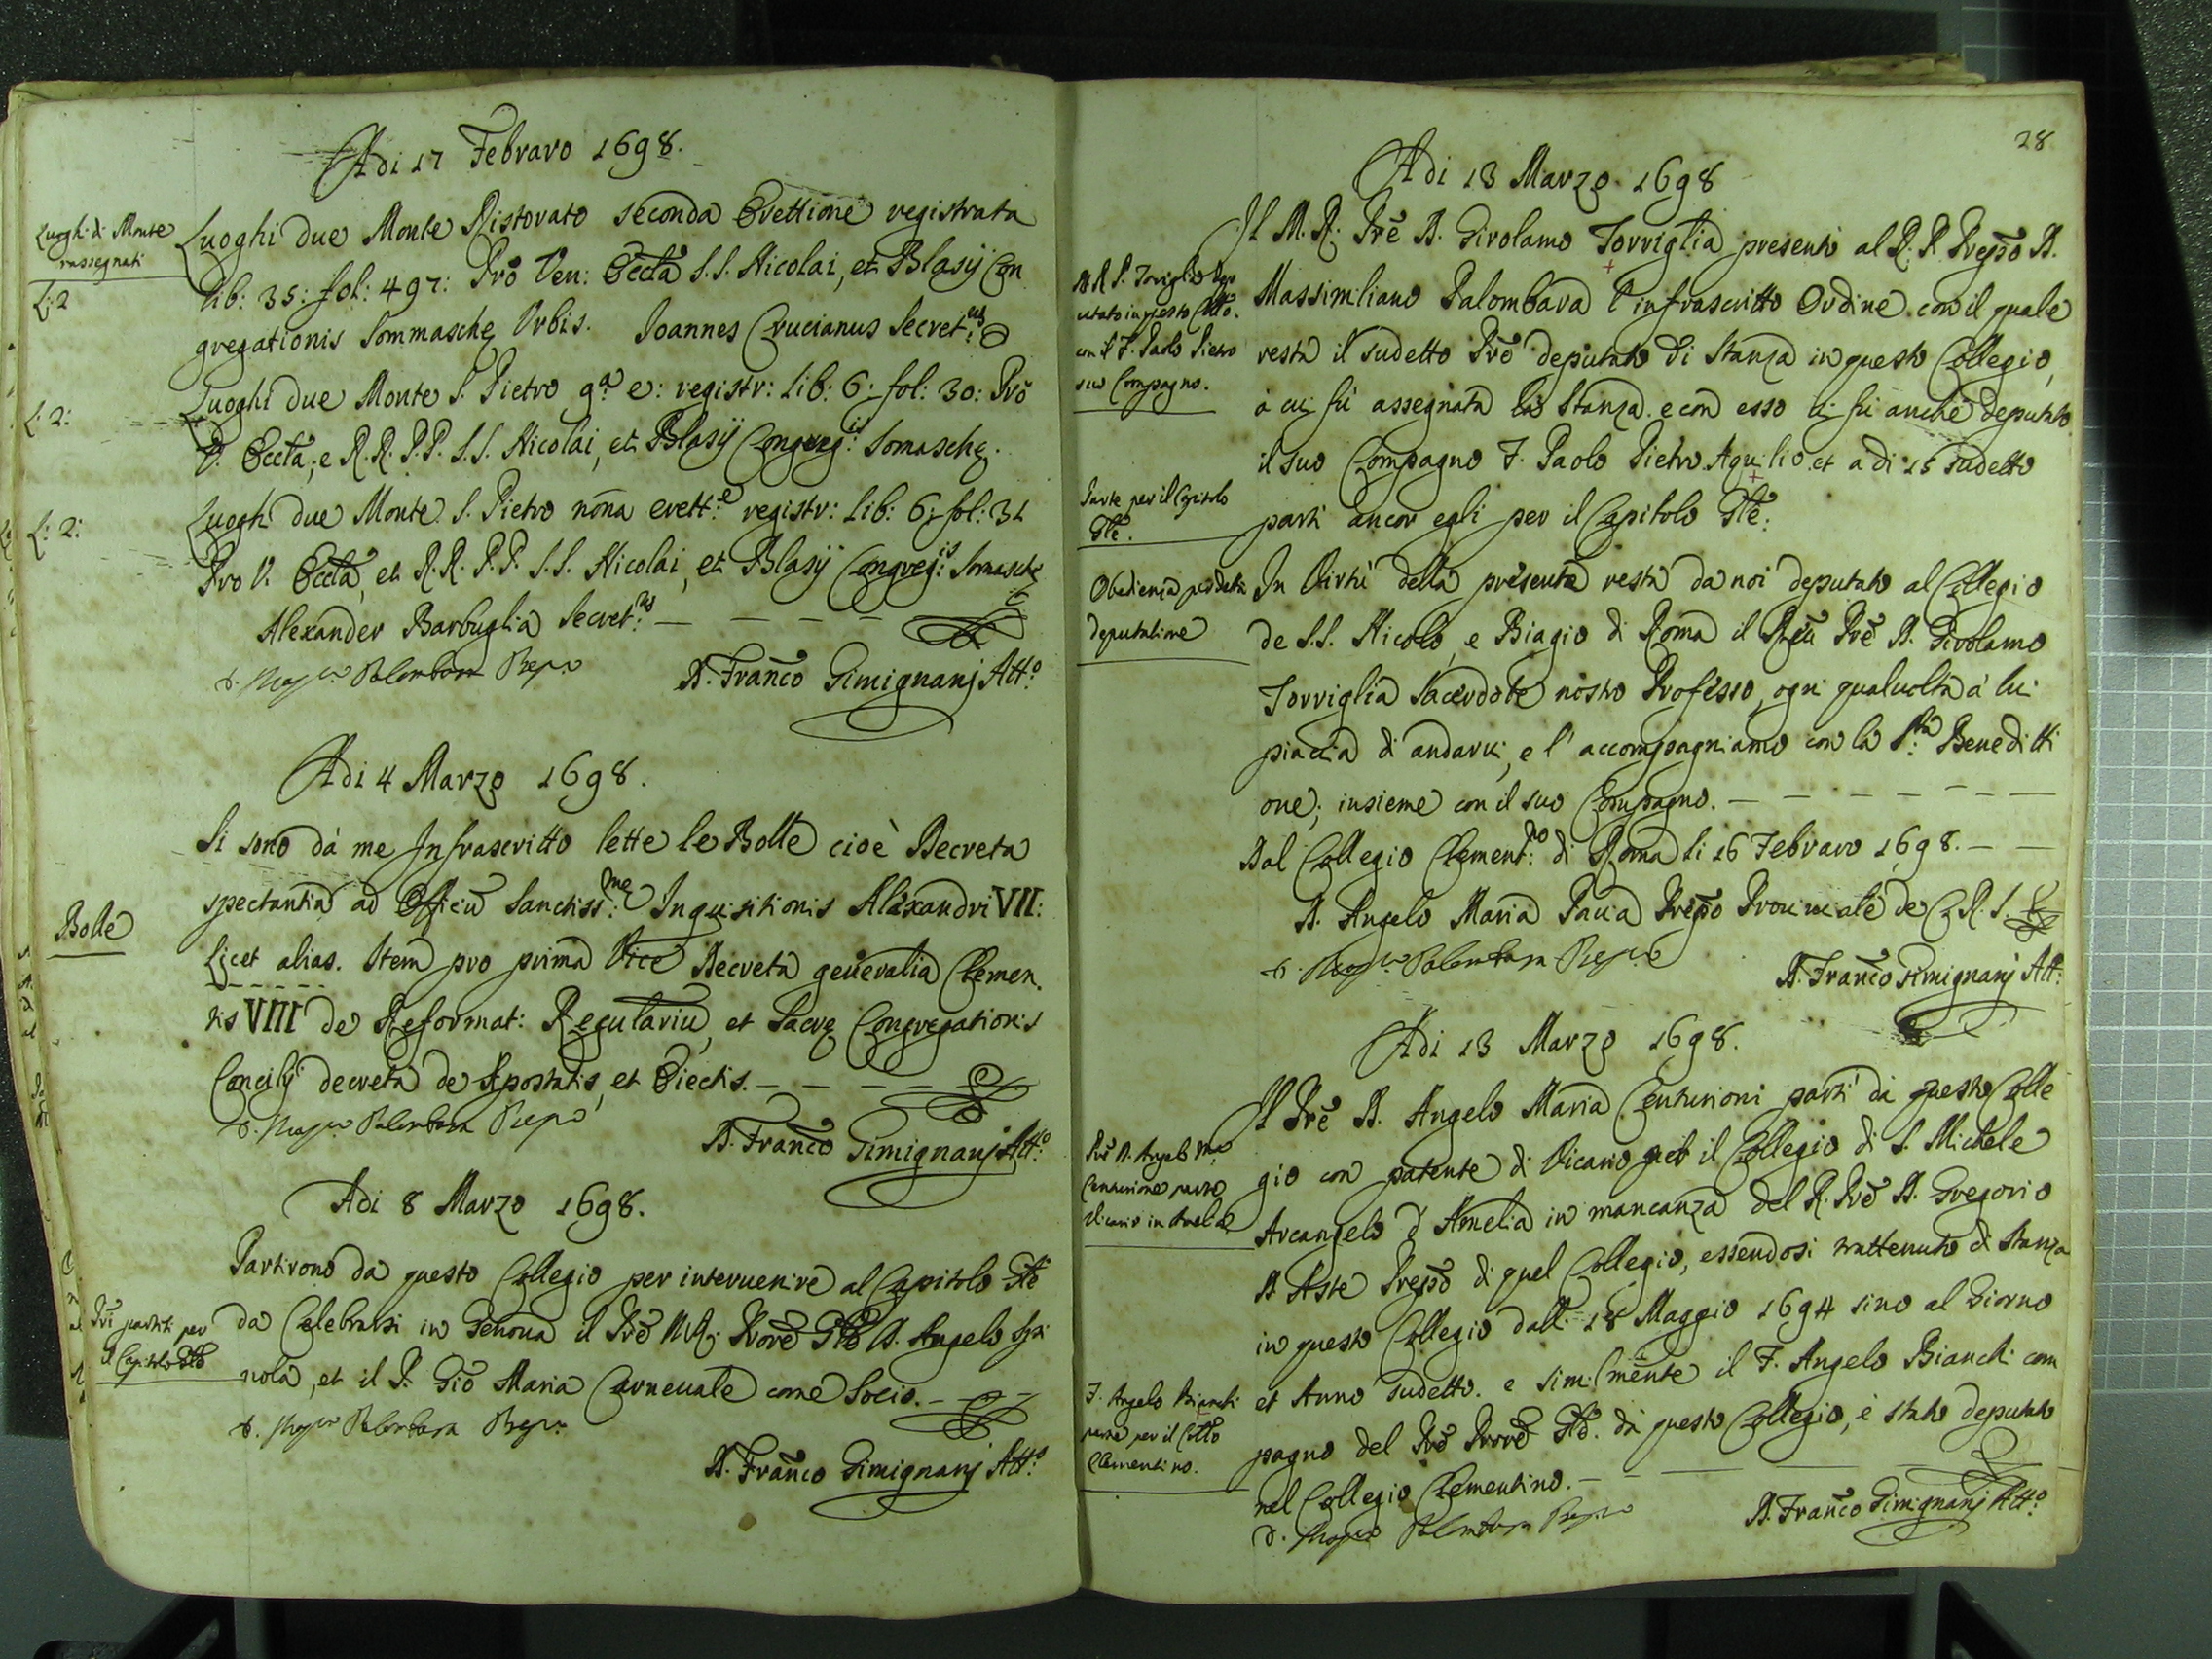 Adi 17 Febraro 1698.
Luoghi di Monte
rassegnati
Luoghi due Monte Ristorato seconda Erettione registrata
L: 2
lib: 35: fol: 497: Prò Ven: Eccla S.S. Nicolai, et Blasij Con
gregationis Sommasche Urbis. Joannes Crucianus Secret:us
L: 2:
Luoghi due Monte S. Pietro 9a e: registr: lib: 6: fol: 30: Prò
V. Eccla, e R.R. P.P. S.S. Nicolai, et Blasij Congreg:is Somasche.
L: 2:
Luoghi due Monte S. Pietro nona erett:e registr: lib: 6: fol: 31
Pro V. Eccla, et R.R. P.P. S.S. Nicolai, et Blasij Congreg:is Somasche
Alexander Barbuglia Secret:us
D. Palombara Prepto
D. Franco Gimignanj Att:o
Adi 4 Marzo 1698.
Si sono dà me Infrascritto lette le Bolle cioè Decreta
spectantia ad Officiũ Sanctiss:me Inquisitionis Alexandri VII:
Bolle
Licet alias. Item pro prima Vice Decreta generalia Clemen
tis VIII de Reformat: Regulariũ, et Sacre Congregationis
Concilij decreta de Apostatis, et Eiectis.
D. Palombara Prepto
D. Franco Gimignanj Att:o
Adi 8 Marzo 1698.
Partirono da questo Collegio per intervenire al Capitolo Gle
Pri partiti per
il Capitolo Gle
da Celebrarsi in Genova il Pre Prore Gle D. Angelo Spi
nola, et il P. Gio Maria Carnevale come Socio.
D. Palombara Prepto
D. Franco Gimignanj Att:o
28
Adi 13 Marzo 1698
Il M. R. Pre D. Girolamo Torriglia presentò al R. P. Prepto D.
M. R. P. Toriglia dep
utato in questo Collo.
con il F. Paolo Pietro
suo Compagno.
Massimiliano Palombara l'infrascritto Ordine con il quale
resta il sudetto Pre deputato di Stanza in questo Collegio,
à cui fù assegnata la Stanza. e con esso lui fù anche deputato
il suo Compagno F. Paolo Pietro Aquilio. et a di 15 sudetto
Parte per il Capitolo
Gle.
partì ancor egli per il Capitolo Gle:
Obedienza per detta
deputatione
In Virtù della presente resta da noi deputato al Collegio
de S.S. Nicolò, e Biagio di Roma il Pre D. Girolamo
Torriglia Sacerdote nostro Professo, ogni qualvolta à lui
piaccia di andarvi, e l'accompagniamo con la S:ta Beneditti
one, insieme con il suo Compagno.
Dal Collegio Clement:no di Roma li 16 Febraro 1698.
D. Angelo Maria Pacia Prepto Provinciale de C. R. S.
D. Palombara Prepto
D. Franco Gimignanj Att:
Adi 13 Marzo 1698.
Il Pre D. Angelo Maria Centurioni partì da questo Colle
Pre D. Angelo Ma
Centurione parte
Vicario in Amelia
gio con patente di Vicario per il Collegio di S. Michele
Arcangelo d'Amelia in mancanza del R. Pre D. Gregorio
D Aste Prepto di quel Collegio, essendosi trattenuto di Stanza
in questo Collegio dalli 18 Maggio 1694 sino al Giorno
F. Angelo Bianchi
parte per il Collo
Clementino.
et Anno sudetto. e similmente il F. Angelo Bianchi com
pagno del Pre Prore Gle. da questo Collegio, è stato deputato
nel Collegio Clementino.
D. Palombara Prepto
D. Franco Gimignanj Att:o